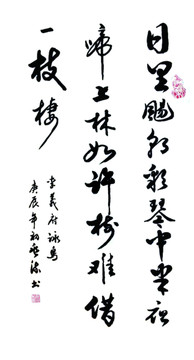 日里颺朝彩琴中半夜
啼上林如許樹難借
一枝棲
李義府詠烏
庚辰年初書